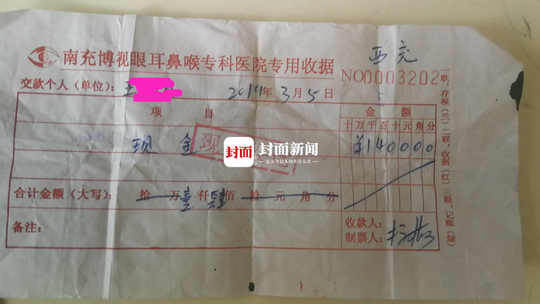 西充
南充博视眼耳鼻喉专科医院专用收据
NO0003202
交款个人（单位）：王
2014年3月5日
项 目
金 额
十万千百十元角分
现金
现
¥140000
封面 封面新闻
合计金额（大写）： 拾 万壹仟肆佰 拾 元 角 分
备注：
收款人：
制票人：
一联：存根（黑） 二联：收据（红） 三联：记账（绿）